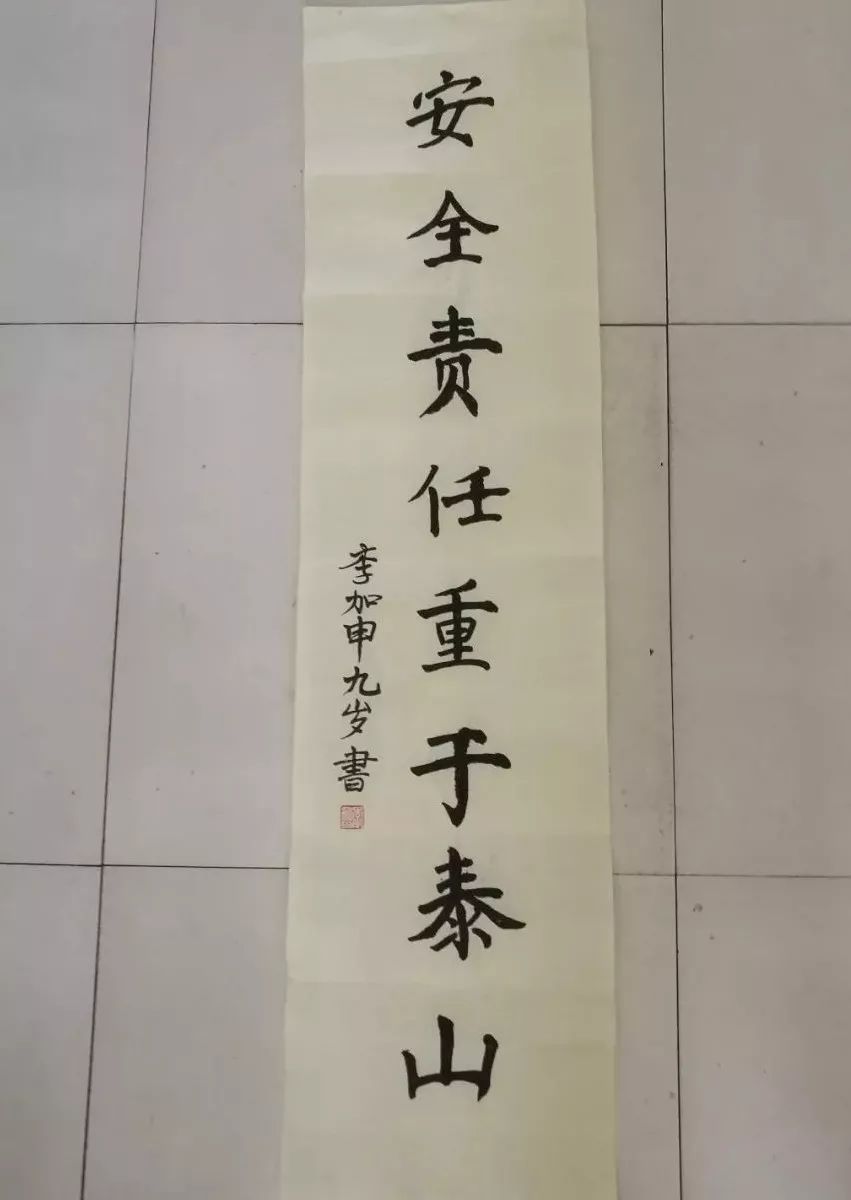 安全责任重于泰山
李加申九岁書